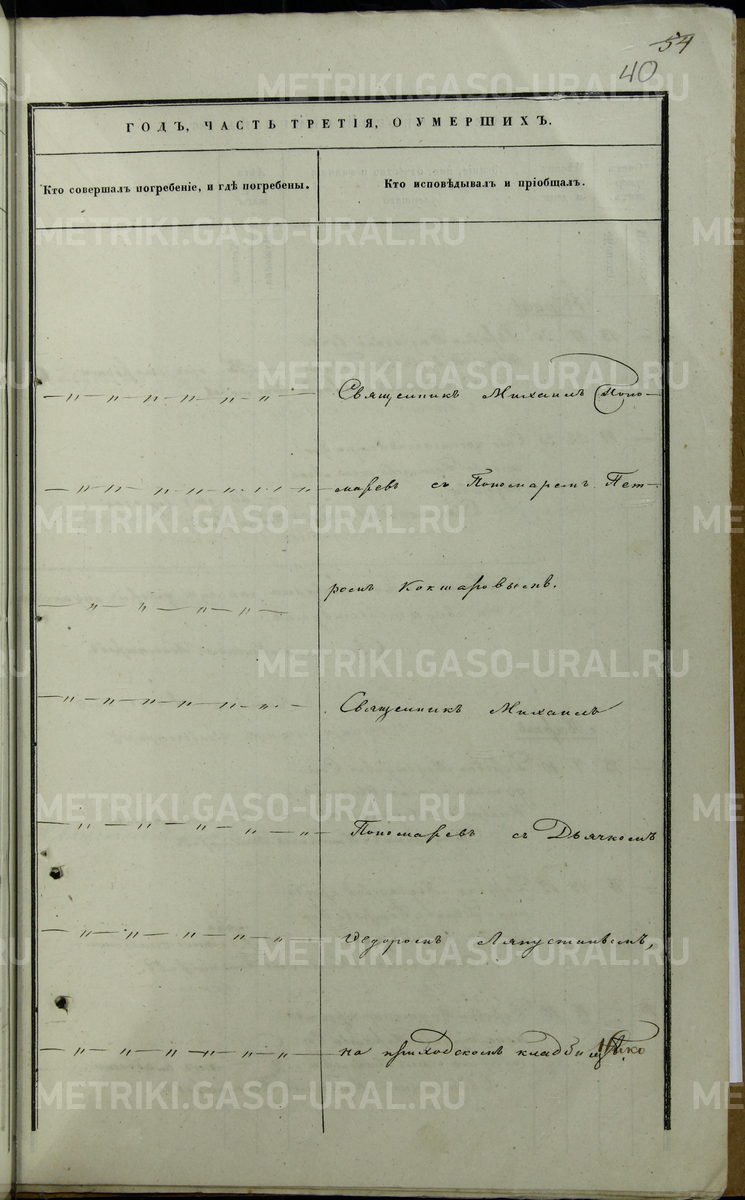 54
40
ГОДЪ, ЧАСТЬ ТРЕТІЯ, О УМЕРШИХЪ.
Кто совершалъ погребеніе, и гдѣ погребены.
Кто исповѣдывалъ и пріобщалъ.
Священникъ Михаилъ Поно-
маревъ съ Пономаремъ Пет-
ромъ Кокшаровымъ.
Священникъ Михаилъ
Пономаревъ съ Дьячкомъ
Ѳедоромъ Ляпустинымъ,
на приходскомъ кладбищѣ
METRIKI.GASO-URAL.RU